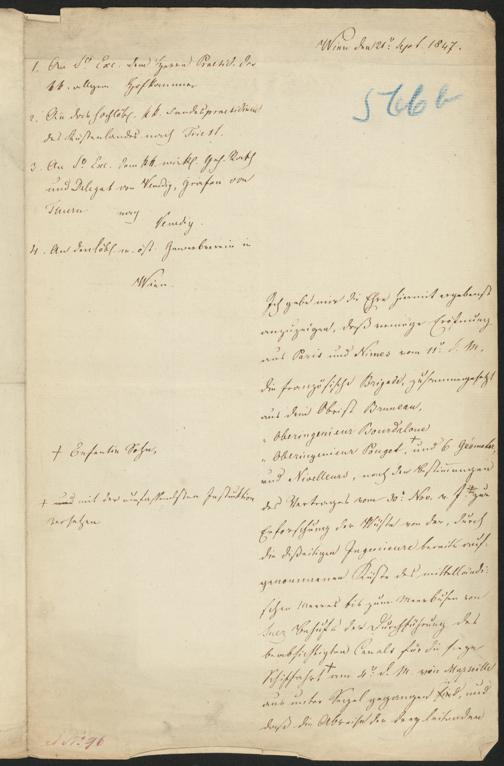 Wien den 21t Sept. 1847.
566 b
1. An Sr Exc. dem Herrn Praesid. der
kk. allgem. Hofkammer
2. An das hochlöbl. kk. Landespraesidium
des Küstenlandes nach Triest.
3. An Sr Exc. dem kk. wirkl. Geh. Rath
und Delegat von Venedig, Grafen von
nach
Venedig.
4. An den löbl. n. öst. Gewerbverein in
Wien.
Ich gebe mir die Ehre hiermit ergebenst
anzuzeigen, daß vermöge Eröffnung
aus Paris und Nimes vom 11t d. M.
die französische Brigade, zusammengesetzt
aus dem Obrist Bruneau,
" Oberingenieur Bourdaloue
" Oberingenieur Pouget + und 6 Géometer,
und Nivelleurs, nach den Bestimmungen
des Vertrages vom 30t Nov. v. J. + zur
Erforschung der Wüste von der, durch
die dießseitigen Ingenieure bereits auf-
genommenen Küste des mittelländi-
schen Meeres bis zum Meerbusen von
Suez Behufs der Durchführung des
beabsichtigten Canals für die freye
Schiffahrt + am 4t d. M. von Marseille
aus unter Segel gegangen sind, und
daß die Abreise der begleitenden
+ Enfantin Sohn,
+ und mit der umfassendsten Instruktion
versehen